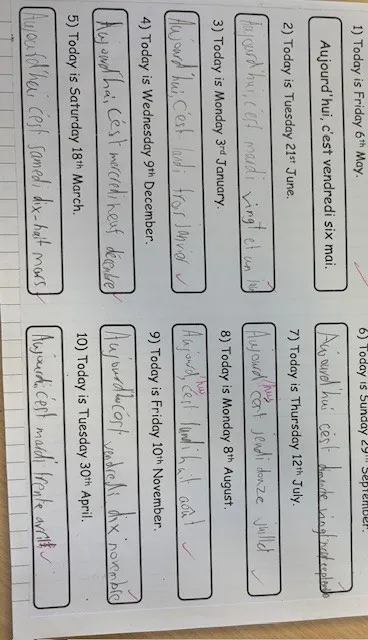 1) Today is Friday 6th May.
Aujourd'hui, c'est vendredi six mai.
2) Today is Tuesday 21st June.
Aujourd'hui, c'est mardi vingt et un
3) Today is Monday 3rd January.
Aujourd'hui, c'est lundi trois janvier
4) Today is Wednesday 9th December.
Aujourd'hui, c'est mercredi neuf décembre
5) Today is Saturday 18th March.
Aujourd'hui c'est samedi dix-huit mars
6) Today is Sunday 29th September.
Aujourd'hui c'est vingt neuf septembre
7) Today is Thursday 12th July.
Aujourd'hui c'est jeudi douze Juillet
8) Today is Monday 8th August.
Aujourd'hui, c'est lundi huit août
9) Today is Friday 10th November.
Aujourd'hui c'est vendredi dix novembre
10) Today is Tuesday 30th April.
c'est mardi trente avril